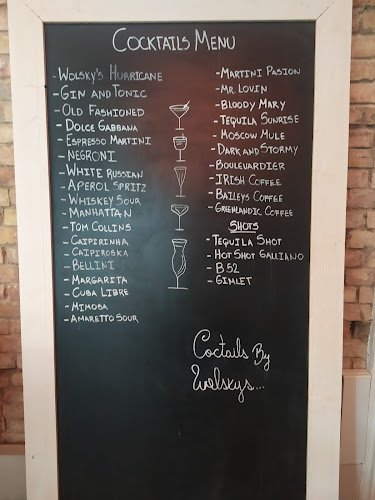 COCKTAILS MENU
- WOLSKY'S HURRICANE
- GIN AND TONIC
- OLD FASHIONED
- DOLCE GABBANA
- ESPRESSO MARTINI
- NEGRONI
- WHITE RUSSIAN
- APEROL SPRITZ
- WHISKEY SOUR
- MANHATTAN
- TOM COLLINS
- CAIPIRINHA
- CAIPIROSKA
- BELLINI
- MARGARITA
- CUBA LIBRE
- MIMOSA
- AMARETTO SOUR
- MARTINI PASION
- MR. LOVIN
- BLOODY MARY
- TEQUILA SUNRISE
- MOSCOW MULE
- DARK AND STORMY
- BOULEVARDIER
- IRISH COFFEE
- BAILEYS COFFEE
- GREENLANDIC COFFEE
SHOTS
- TEQUILA SHOT
- HOT SHOT GALLIANO
- B 52
- GIMLET
Coctails By
Wolskys...